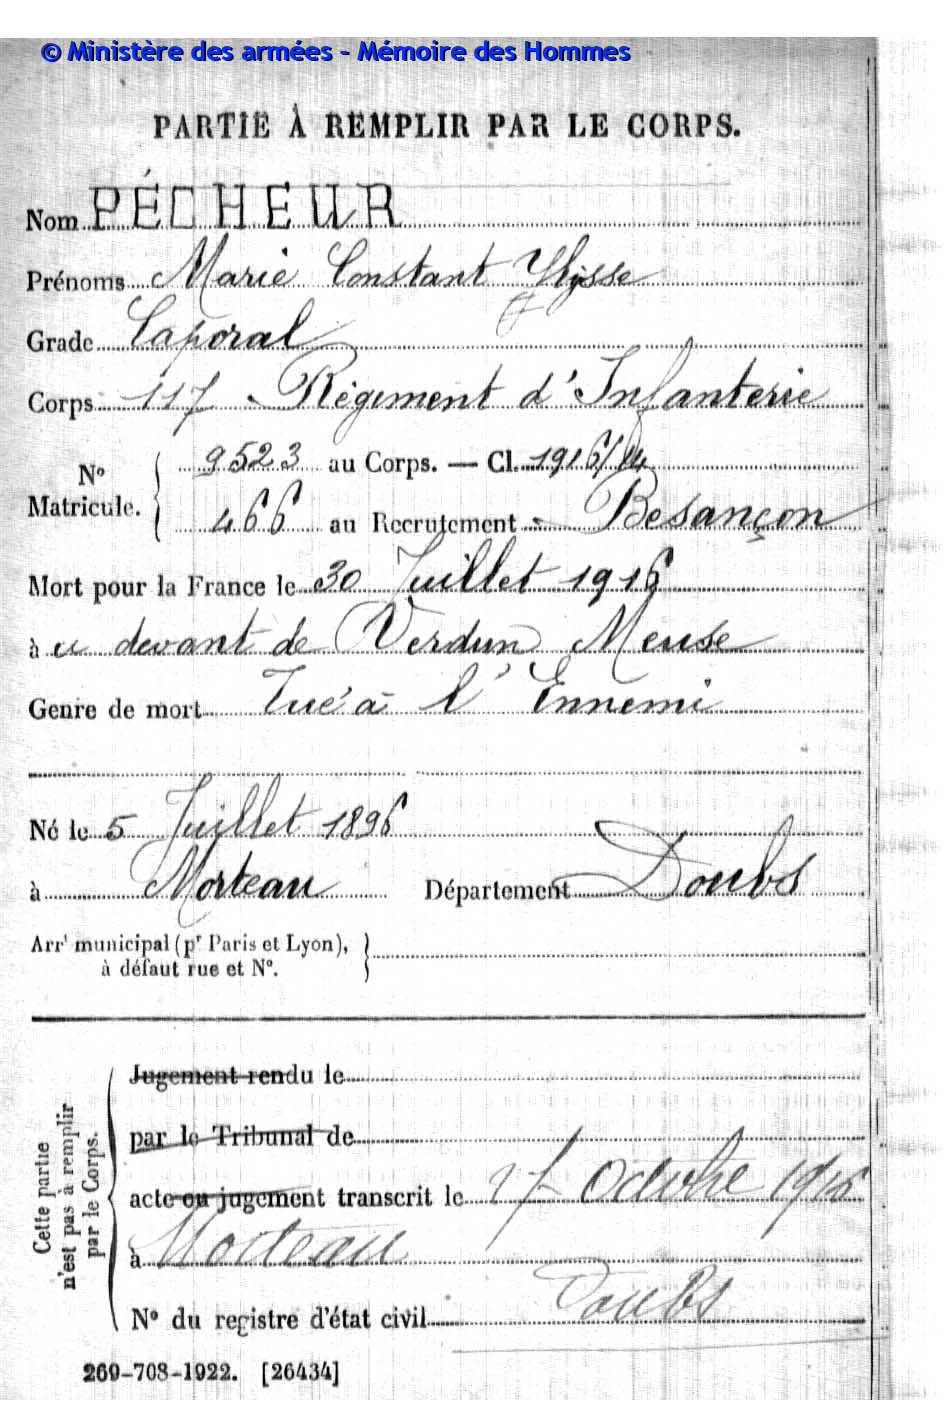 © Ministère des armées - Mémoire des Hommes
PARTIE À REMPLIR PAR LE CORPS.
Nom PÉCHEUR
Prénoms Marie Constant Ulysse
Grade Caporal
Corps 117 Régiment d'Infanterie
N° Matricule. 9523 au Corps. — Cl. 1916/14
466 au Recrutement Besançon
Mort pour la France le 30 Juillet 1916
à devant de Verdun Meuse
Genre de mort Tué à l'Ennemi
Né le 5 Juillet 1896
à Morteau Département Doubs
Arrt municipal (pr Paris et Lyon),
à défaut rue et N°.
Cette partie
n'est pas à remplir
par le Corps.
Jugement rendu le
par le Tribunal de
acte ou jugement transcrit le 17 Octobre 1916
à Morteau
Doubs
N° du registre d'état civil
269-708-1922. [26434]